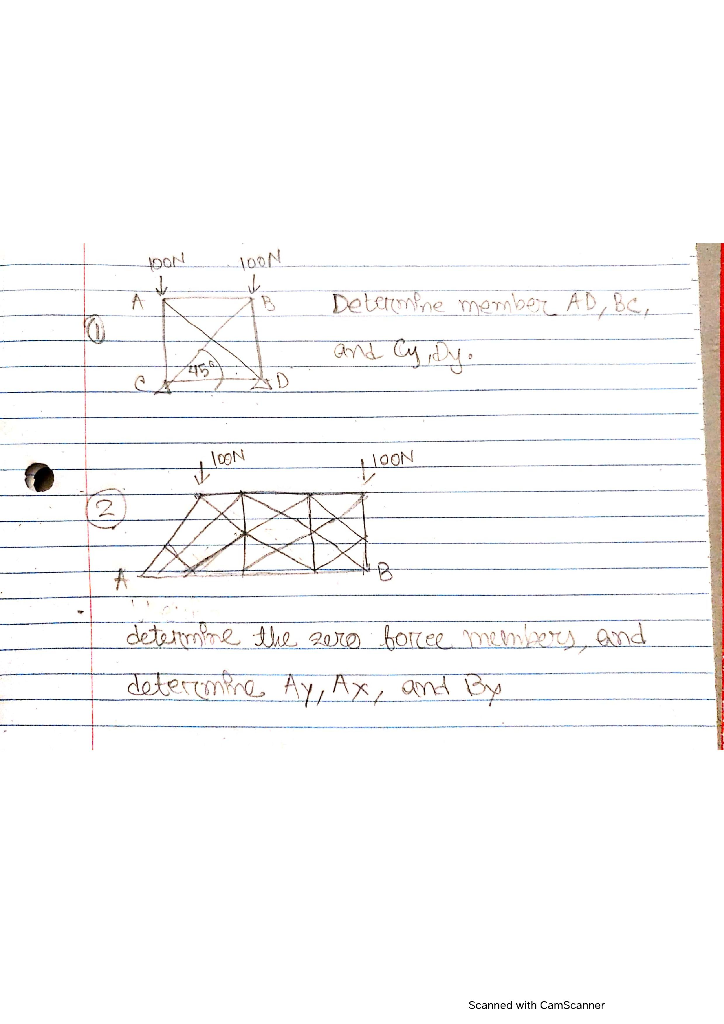 100N 100N
A B Determine member AD, BC,
①
45° and Cy, Dy.
C D
100N 100N
②
A B
determine the zero force members, and
determine Ay, Ax, and By
Scanned with CamScanner